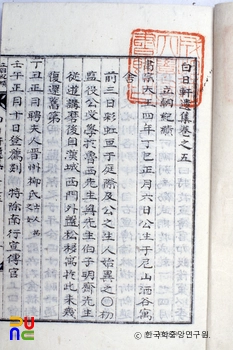 白日軒遺集卷之五
立朝紀蹟
肅宗大王四年丁巳正月六日公生于尼山酒谷寓
舍
前三日彩虹亘于庭際及公之生人始異之○初
監役公受學於魯西先生與先生伯子明齋先生
從遊講磨後自漢城西門外盤松移寓於此未幾
復還舊第
丁丑正月聘夫人晉州柳氏
壬午正月十日登 特除南行宣傳官
ⓒ 한국학중앙연구원